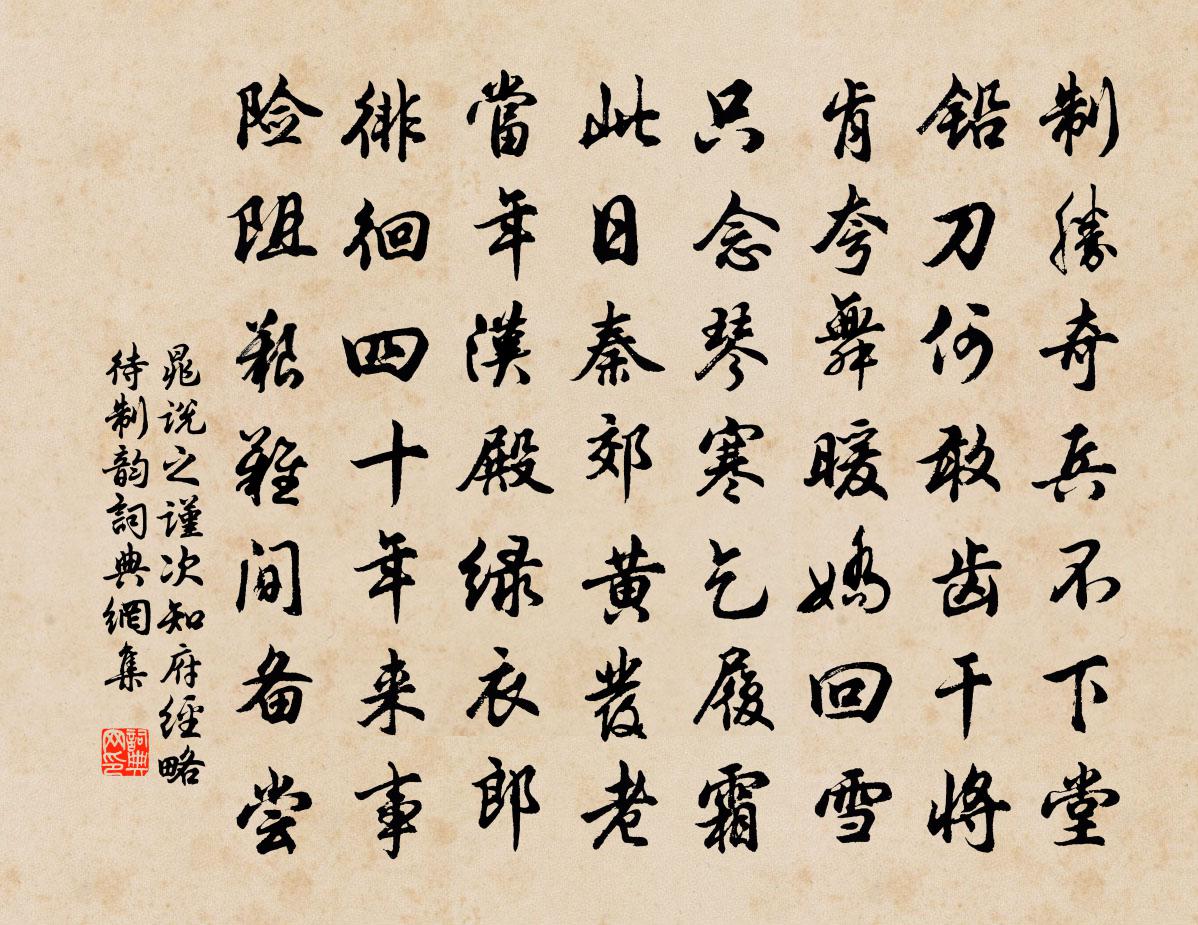 制勝奇兵不下堂
铅刀何敢齿干将
肯夸舞暖嬌回雪
只念琴寒乞履霜
此日秦郊黄發老
當年漢殿绿衣郎
徘徊四十年来事
险阻艱難间备尝
晁说之谨次知府經略
待制韵詞典網集
詞典
网印